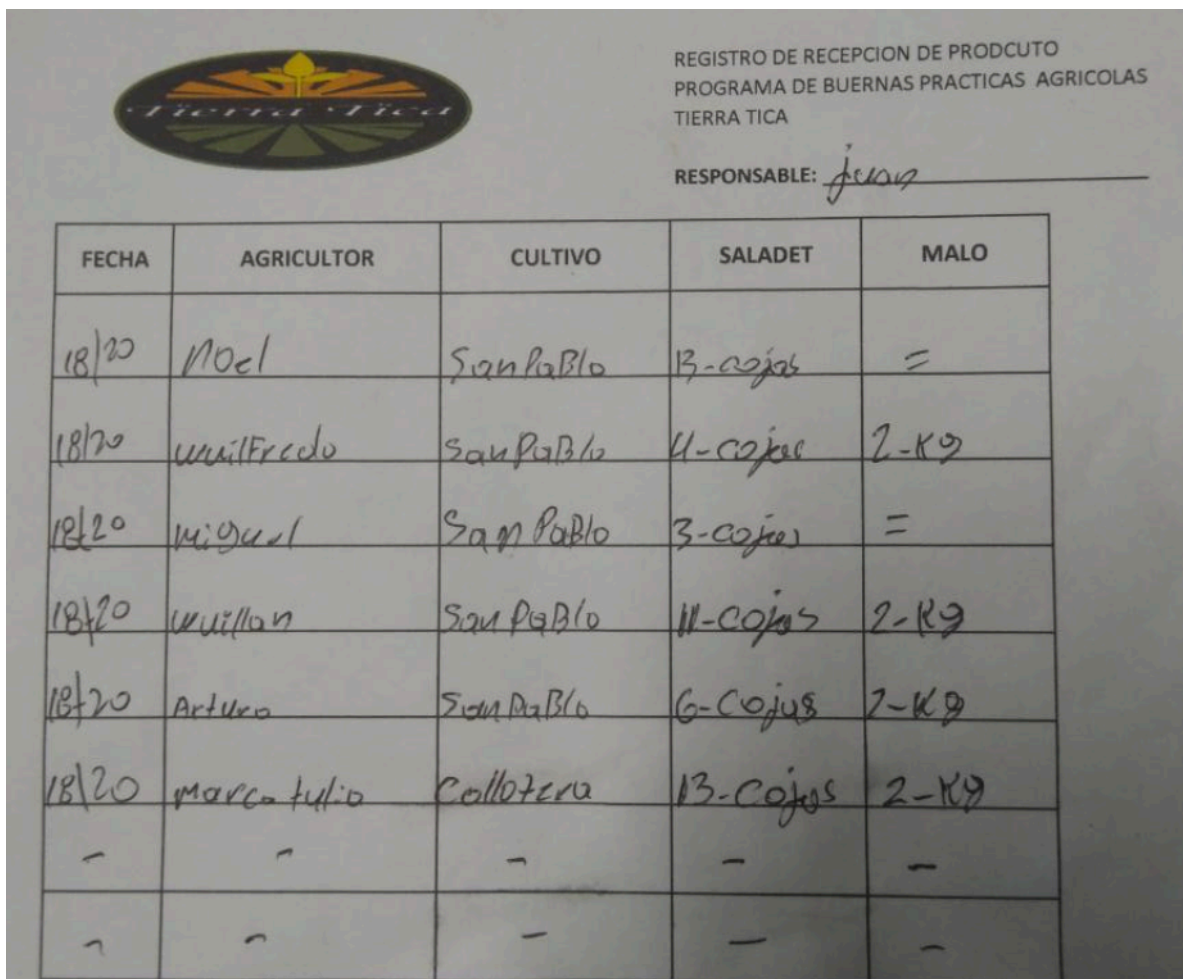 Tierra Tica
REGISTRO DE RECEPCION DE PRODCUTO
PROGRAMA DE BUERNAS PRACTICAS AGRICOLAS
TIERRA TICA
RESPONSABLE: juan
FECHA AGRICULTOR CULTIVO SALADET MALO
18/20 NOel SanPaBlo 13-cojas =
18/20 wuilFredo SanPaBlo 4-cojas 2-Kg
18/20 Miguel San PaBlo 3-cojas =
18/20 wuillan San PaBlo 11-cojas 2-Kg
18/20 Arturo San PaBlo 6-Cojas 2-Kg
18/20 Marco tulio 13-Cojas 2-Kg
- - - - -
- - - - -